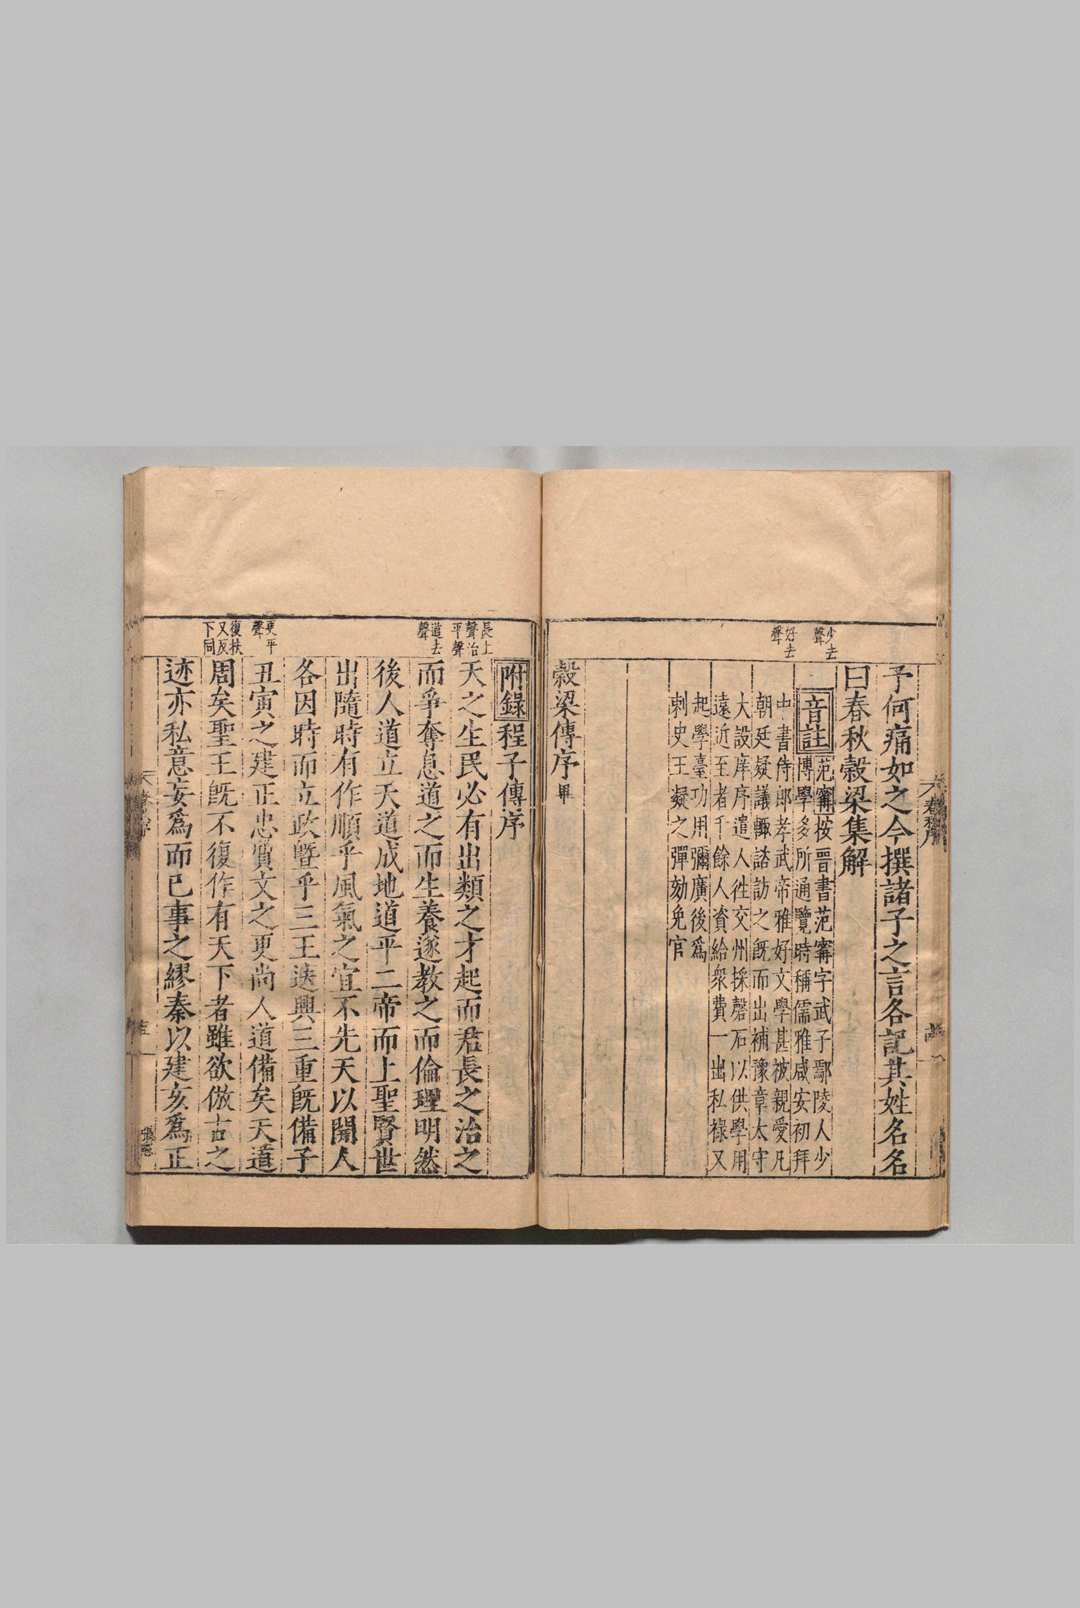 少去
聲
好去
聲
予何痛如之今撰諸子之言各記其姓名名
曰春秋穀梁集解
音註
范甯按晉書范甯字武子鄢陵人少
博學多所通覽時稱儒雅咸安初拜
中書侍郎孝武帝雅好文學甚被親愛凡
朝廷疑議輒諮訪之既而出補豫章太守
大設庠序遣人往交州採磬石以供學用
遠近至者千餘人資給衆費一出私祿又
起學臺功用彌廣後爲
刺史王凝之彈劾免官
穀梁傳序畢
長上
聲治
平聲
道去
聲
更平
聲
復扶
又反
下同
附錄程子傳序
天之生民必有出類之才起而君長之治之
而爭奪息道之而生養遂教之而倫理明然
後人道立天道成地道平二帝而上聖賢世
出隨時有作順乎風氣之宜不先天以開人
各因時而立政曁乎三王迭興三重旣備子
丑寅之建正忠質文之更尚人道備矣天道
周矣聖王旣不復作有天下者雖欲倣古之
迹亦私意妄爲而已事之繆秦以建亥爲正